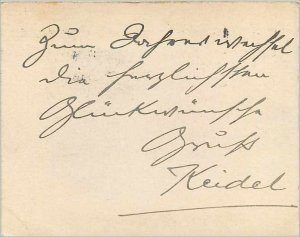 Zum Jahreswechsel
die herzlichsten
Glückwünsche
Gruß
Keidel